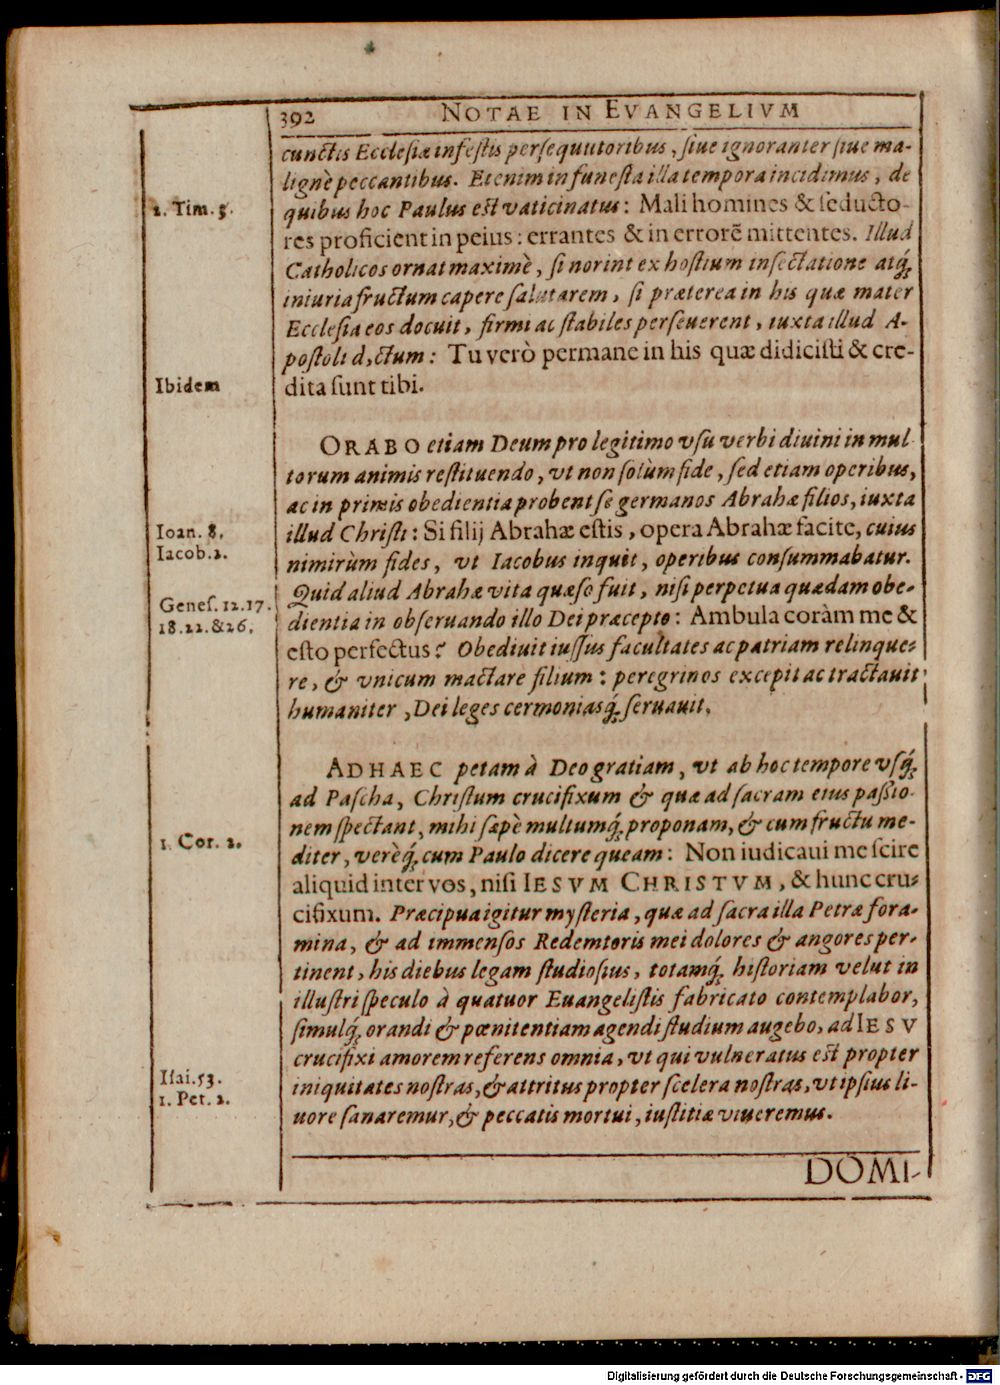 392 NOTAE IN EVANGELIVM
cunctis Ecclesiæ infestis persequutoribus, siue ignoranter siue ma-
lignè peccantibus. Etenim in funesta illa tempora incidimus, de
2. Tim. 3.
quibus hoc Paulus est vaticinatus: Mali homines & seducto-
res proficient in peius: errantes & in errorē mittentes. Illud
Catholicos ornat maximè, si norint ex hostium insectatione atq́;
iniuria fructum capere salutarem, si præterea in his quæ mater
Ecclesia eos docuit, firmi ac stabiles perseuerent, iuxta illud A-
postoli dictum: Tu verò permane in his quæ didicisti & cre-
Ibidem
dita sunt tibi.
ORABO etiam Deum pro legitimo vsu verbi diuini in mul-
torum animis restituendo, vt non solùm fide, sed etiam operibus,
ac in primis obedientia probent se germanos Abrahæ filios, iuxta
Ioan. 8.
illud Christi: Si filij Abrahæ estis, opera Abrahæ facite, cuius
Iacob. 2.
nimirùm fides, vt Iacobus inquit, operibus consummabatur.
Quid aliud Abrahæ vita quæso fuit, nisi perpetua quædam obe-
Genes. 12. 17.
18. 22. & 26.
dientia in obseruando illo Dei præcepto: Ambula coràm me &
esto perfectus? Obediuit iussus facultates ac patriam relinque-
re, & vnicum mactare filium: peregrinos excepit ac tractauit
humaniter, Dei leges cermoniasq́; seruauit.
ADHAEC petam à Deo gratiam, vt ab hoc tempore vsq́;
ad Pascha, Christum crucifixum & quæ ad sacram eius passio-
nem spectant, mihi sæpè multumq́; proponam, & cum fructu me-
1. Cor. 2.
diter, verèq́; cum Paulo dicere queam: Non iudicaui me scire
aliquid inter vos, nisi IESVM CHRISTVM, & hunc cru-
cifixum. Præcipua igitur mysteria, quæ ad sacra illa Petræ fora-
mina, & ad immensos Redemtoris mei dolores & angores per-
tinent, his diebus legam studiosius, totamq́; historiam velut in
illustri speculo à quatuor Euangelistis fabricato contemplabor,
simulq́; orandi & pœnitentiam agendi studium augebo, ad IESV
crucifixi amorem referens omnia, vt qui vulneratus est propter
Isai. 53.
iniquitates nostras, & attritus propter scelera nostras, vt ipsius li-
1. Pet. 2.
uore sanaremur, & peccatis mortui, iustitiæ viueremus.
DOMI-
Digitalisierung gefördert durch die Deutsche Forschungsgemeinschaft - DFG